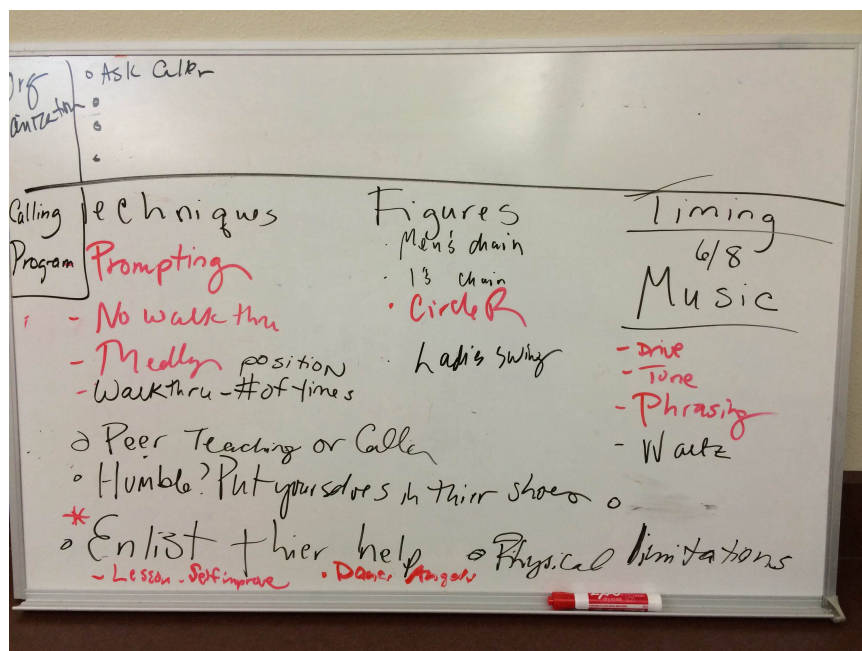 Org
anization
• Ask Caller
Calling
Program
Techniques
Prompting
- No walk thru
- Medley position
- Walkthru - # of times
Figures
· Men's chain
· 1's chain
· Circle R
· Ladies swing
Timing
6/8
Music
- Drive
- Tune
- Phrasing
- Waltz
o Peer Teaching or Caller
• Humble? Put yourselves in thier shoes
* Enlist thier help
- Lesson - Self improve • Dance Angels
o Physical limitations
EXPO